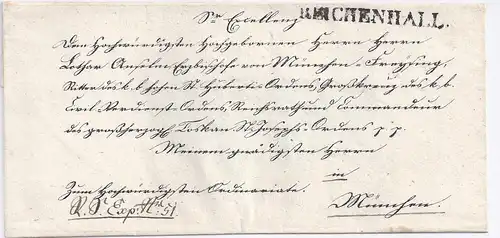 Sr Excellenz
REICHENHALL.
Dem Hochwürdigsten Hochgebornen Herrn Herrn
Lothar Anselm Erzbischofe von München-Freysing,
Ritter des k. b. hohen St Huberts-Ordens, Großkreuz des k. b.
Civil-Verdienst-Ordens, Reichsrath und Commandeur
des großherzogl Toskan St Josephs-Ordens p. p.
Meinem gnädigsten Herrn
in
Zum Hochwürdigsten Ordinariate.
München.
R. S. Exp. No 51.